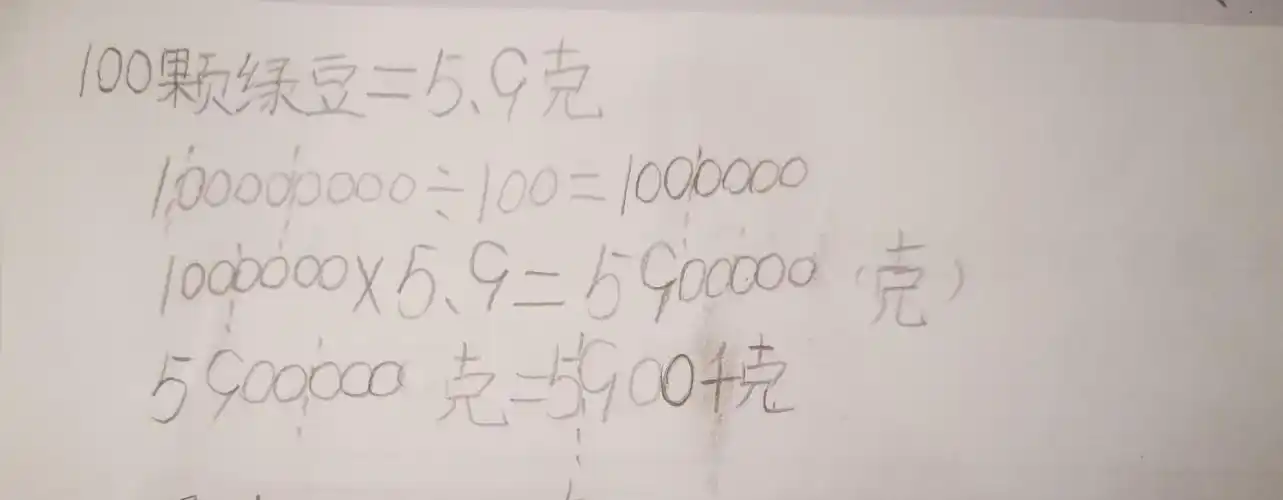 100颗绿豆=5.9克
100000000÷100=1000000
1000000×5.9=5900000(克)
5900000克=5900千克